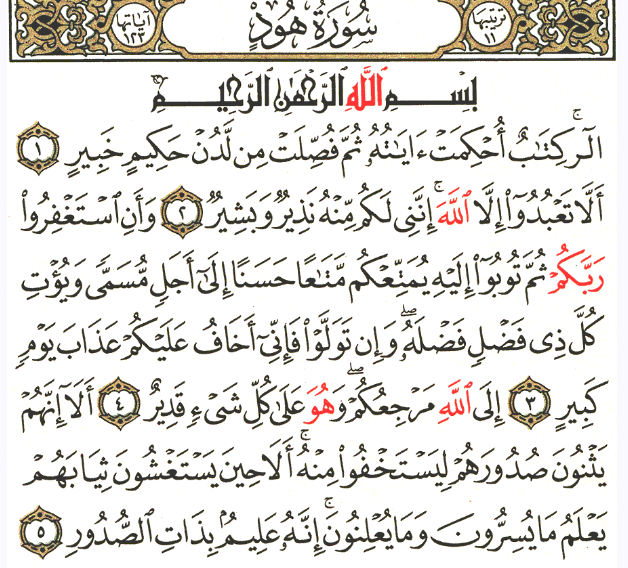 ترتيبها ١١ سُورَةُ هُودٍ آياتها ١٢٣
بِسْمِ ٱللَّهِ ٱلرَّحْمَٰنِ ٱلرَّحِيمِ
الٓر ۚ كِتَٰبٌ أُحْكِمَتْ ءَايَٰتُهُۥ ثُمَّ فُصِّلَتْ مِن لَّدُنْ حَكِيمٍ خَبِيرٍ ١
أَلَّا تَعْبُدُوٓا۟ إِلَّا ٱللَّهَ ۚ إِنَّنِى لَكُم مِّنْهُ نَذِيرٌ وَبَشِيرٌ ٢ وَأَنِ ٱسْتَغْفِرُوا۟
رَبَّكُمْ ثُمَّ تُوبُوٓا۟ إِلَيْهِ يُمَتِّعْكُم مَّتَٰعًا حَسَنًا إِلَىٰٓ أَجَلٍ مُّسَمًّى وَيُؤْتِ
كُلَّ ذِى فَضْلٍ فَضْلَهُۥ ۖ وَإِن تَوَلَّوْا۟ فَإِنِّىٓ أَخَافُ عَلَيْكُمْ عَذَابَ يَوْمٍ
كَبِيرٍ ٣ إِلَى ٱللَّهِ مَرْجِعُكُمْ ۖ وَهُوَ عَلَىٰ كُلِّ شَىْءٍ قَدِيرٌ ٤ أَلَآ إِنَّهُمْ
يَثْنُونَ صُدُورَهُمْ لِيَسْتَخْفُوا۟ مِنْهُ ۚ أَلَا حِينَ يَسْتَغْشُونَ ثِيَابَهُمْ
يَعْلَمُ مَا يُسِرُّونَ وَمَا يُعْلِنُونَ ۚ إِنَّهُۥ عَلِيمٌۢ بِذَاتِ ٱلصُّدُورِ ٥